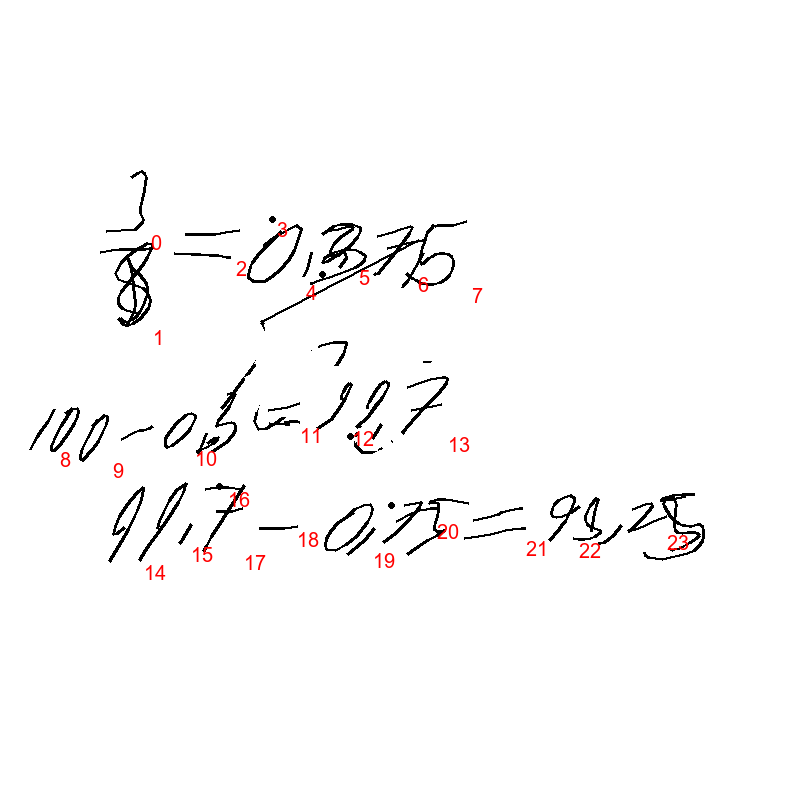 3/8 = 0,375
100 - 0,3 = 99,7
99,7 - 0,75 = 98,25
0 1 2 3 4 5 6 7
8 9 10 11 12 13
14 15 16 17 18 19 20 21 22 23